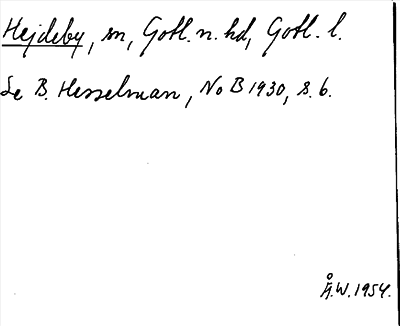 Hejdeby, sn, Gotl. n. hd, Gotl. l.
Se B. Hesselman, NoB 1930, s. 6.
Å.W. 1954.